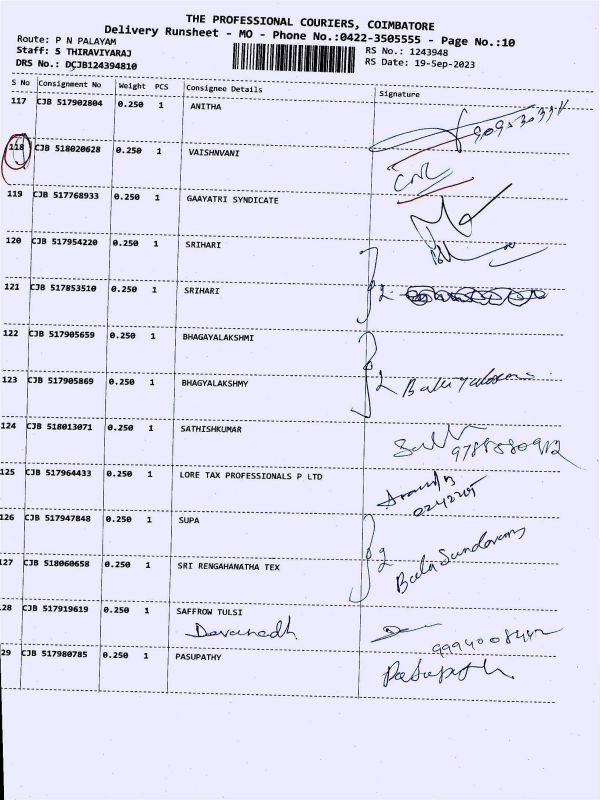 THE PROFESSIONAL COURIERS, COIMBATORE
Delivery Runsheet - MO - Phone No.:0422-3505555 - Page No.:10
Route: P N PALAYAM
RS No.: 1243948
Staff: S THIRAVIYARAJ
RS Date: 19-Sep-2023
DRS No.: DCJB124394810
S No Consignment No Weight PCS Consignee Details Signature
117 CJB 517902804 0.250 1 ANITHA
118 CJB 518020628 0.250 1 VAISHNVANI
119 CJB 517768933 0.250 1 GAAYATRI SYNDICATE
120 CJB 517954220 0.250 1 SRIHARI
121 CJB 517853510 0.250 1 SRIHARI 2
122 CJB 517905659 0.250 1 BHAGAYALAKSHMI
123 CJB 517905869 0.250 1 BHAGYALAKSHMY 2
124 CJB 518013071 0.250 1 SATHISHKUMAR
125 CJB 517964433 0.250 1 LORE TAX PROFESSIONALS P LTD
126 CJB 517947848 0.250 1 SUPA
127 CJB 518060658 0.250 1 SRI RENGAHANATHA TEX 2 Bala Sundaram
28 CJB 517919619 0.250 1 SAFFROW TULSI
Devanadh
29 CJB 517980785 0.250 1 PASUPATHY Pasupath